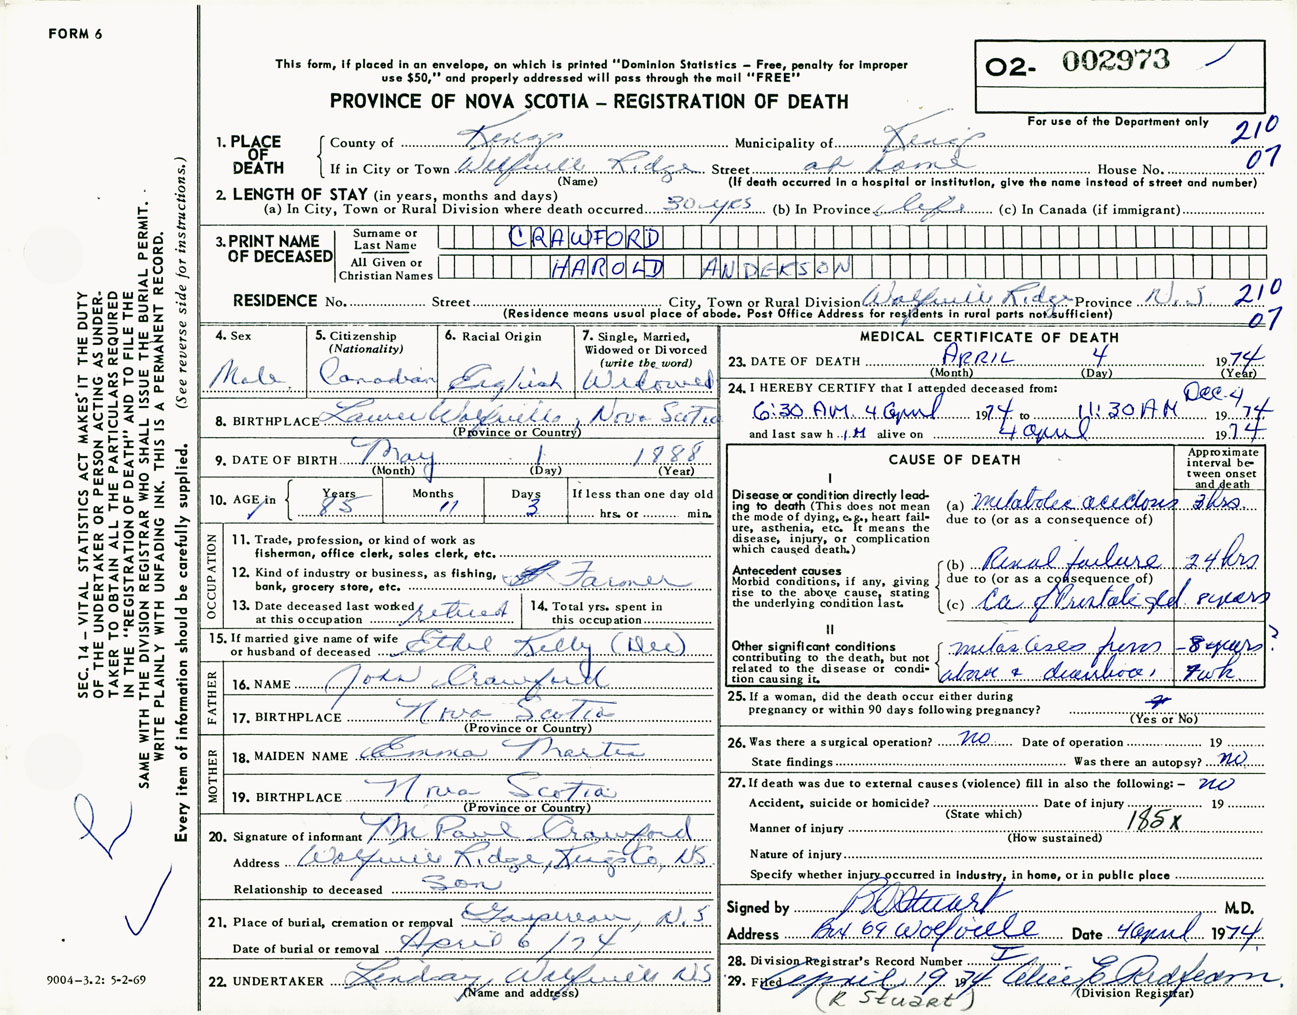 FORM 6
This form, if placed in an envelope, on which is printed "Dominion Statistics – Free, penalty for improper
use $50," and properly addressed will pass through the mail "FREE"
PROVINCE OF NOVA SCOTIA – REGISTRATION OF DEATH
O2- 002973
For use of the Department only
210
07
1. PLACE OF DEATH
County of Kings Municipality of Kings
If in City or Town Wolfville Ridge Street at home House No.
(Name) (If death occurred in a hospital or institution, give the name instead of street and number)
2. LENGTH OF STAY (in years, months and days)
(a) In City, Town or Rural Division where death occurred 30 yrs (b) In Province life (c) In Canada (if immigrant)
3. PRINT NAME OF DECEASED
Surname or Last Name CRAWFORD
All Given or Christian Names HAROLD ANDERSON
RESIDENCE No. Street City, Town or Rural Division Wolfville Ridge Province N.S. 210
(Residence means usual place of abode. Post Office Address for residents in rural parts not sufficient) 07
4. Sex
Male
5. Citizenship
(Nationality)
Canadian
6. Racial Origin
English
7. Single, Married,
Widowed or Divorced
(write the word)
Widowed
8. BIRTHPLACE Lower Wolfville, Nova Scotia
(Province or Country)
9. DATE OF BIRTH May 1 1888
(Month) (Day) (Year)
10. AGE in Years 85 Months 11 Days 3 If less than one day old
hrs. or min.
OCCUPATION
11. Trade, profession, or kind of work as
fisherman, office clerk, sales clerk, etc.
12. Kind of industry or business, as fishing,
bank, grocery store, etc. Farmer
13. Date deceased last worked
at this occupation retired
14. Total yrs. spent in
this occupation
15. If married give name of wife
or husband of deceased Ethel Kelly (Dec)
FATHER
16. NAME John Crawford
17. BIRTHPLACE Nova Scotia
(Province or Country)
MOTHER
18. MAIDEN NAME Emma Martin
19. BIRTHPLACE Nova Scotia
(Province or Country)
20. Signature of informant M Paul Crawford
Address Wolfville Ridge, Kings Co, NS
Relationship to deceased Son
21. Place of burial, cremation or removal Gaspereau, N.S
Date of burial or removal April 6/74
22. UNDERTAKER Lindsay, Wolfville NS
(Name and address)
MEDICAL CERTIFICATE OF DEATH
23. DATE OF DEATH APRIL 4 1974
(Month) (Day) (Year)
24. I HEREBY CERTIFY that I attended deceased from: Dec. 4
6:30 AM. 4 April 1974 to 11:30 AM 1974
and last saw h im alive on 4 April 1974
CAUSE OF DEATH
Approximate
interval be-
tween onset
and death
I
Disease or condition directly lead-
ing to death (This does not mean
the mode of dying, e.g., heart fail-
ure, asthenia, etc. It means the
disease, injury, or complication
which caused death.)
(a) Metabolic acidosis 3 hrs.
due to (or as a consequence of)
Antecedent causes
Morbid conditions, if any, giving
rise to the above cause, stating
the underlying condition last.
(b) Renal failure 24 hrs
due to (or as a consequence of)
(c) Ca of Prostate gld 8 years
II
Other significant conditions
contributing to the death, but not
related to the disease or condi-
tion causing it.
metastases from – 8 years?
above & diarrhoea, wk
25. If a woman, did the death occur either during
pregnancy or within 90 days following pregnancy?
(Yes or No)
26. Was there a surgical operation? no Date of operation 19
State findings Was there an autopsy? no
27. If death was due to external causes (violence) fill in also the following: – no
Accident, suicide or homicide? Date of injury 19
(State which)
Manner of injury 185x
(How sustained)
Nature of injury
Specify whether injury occurred in industry, in home, or in public place
Signed by Stuart M.D.
Address Box 69 Wolfville Date 4 April 1974
28. Division Registrar's Record Number
29. Filed April 19 1974 Alice E. Redfearn.
(R STUART) (Division Registrar)
SEC. 14 – VITAL STATISTICS ACT MAKES IT THE DUTY
OF THE UNDERTAKER OR PERSON ACTING AS UNDER-
TAKER TO OBTAIN ALL THE PARTICULARS REQUIRED
IN THE "REGISTRATION OF DEATH" AND TO FILE THE
SAME WITH THE DIVISION REGISTRAR WHO SHALL ISSUE THE BURIAL PERMIT.
WRITE PLAINLY WITH UNFADING INK. THIS IS A PERMANENT RECORD.
Every item of information should be carefully supplied. (See reverse side for instructions.)
9004-3.2: 5-2-69